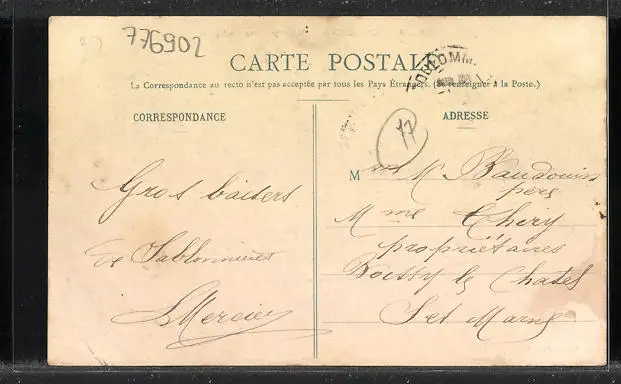 776902
CARTE POSTALE
COULOMM
La Correspondance au recto n'est pas acceptée par tous les Pays Étrangers. (Se renseigner à la Poste.)
CORRESPONDANCE
ADRESSE
77
Gros baisers
de Sablonnières
Mercier
M Baudouin
père
Mme Thiry
propriétaires
Boissy le Chatel
S et Marne